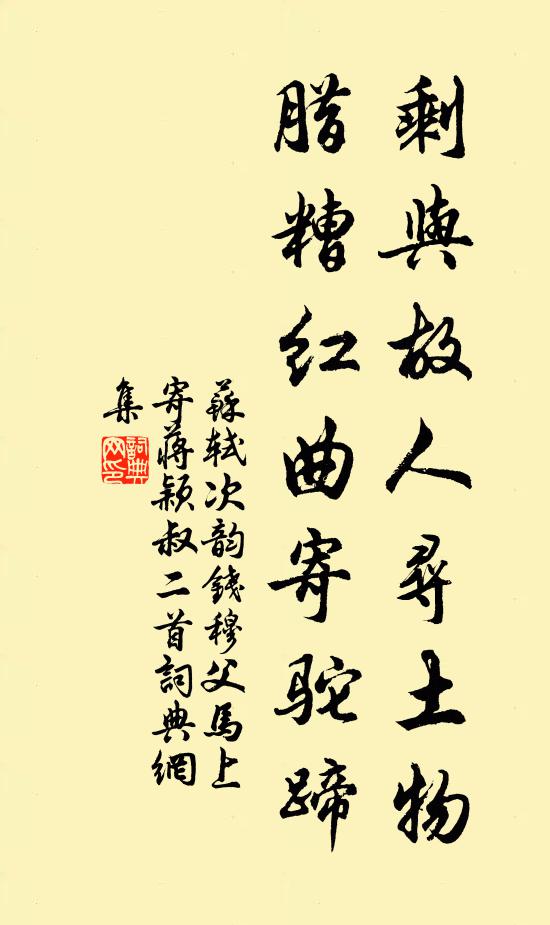 剩與故人尋土物
腊糟红曲寄駝蹄
蘇轼次韵錢穆父馬上
寄蔣颖叔二首詞典網
集
詞典网印